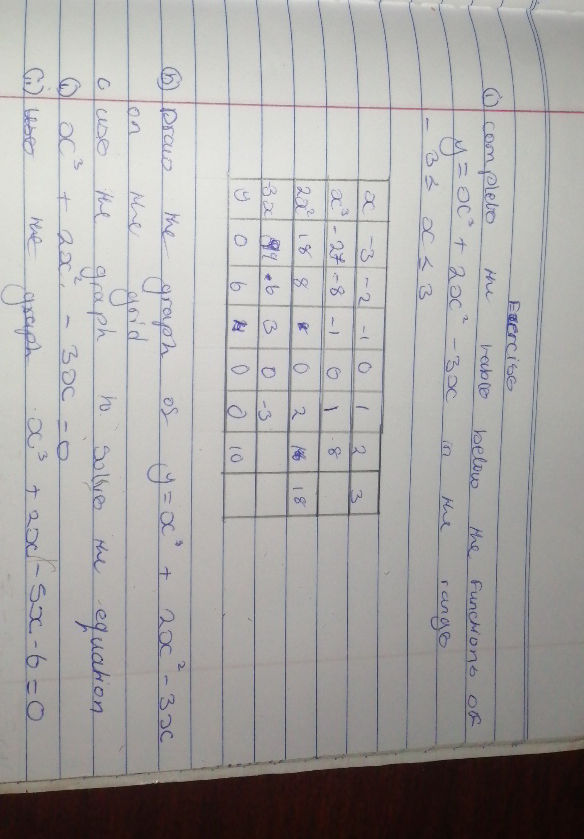 Exercise
(i) complete the table below the functions of
y = x³ + 2x² - 3x in the range
- 3 ≤ x ≤ 3
x -3 -2 -1 0 1 2 3
x³ -27 -8 -1 0 1 8
2x² 18 8 0 2 18
-3x 6 3 0 -3
y 0 6 0 0 10
(b) Draw the graph of y = x³ + 2x² - 3x
on the grid
c use the graph to solve the equation
(i) x³ + 2x² - 3x = 0
(ii) use the graph x³ + 2x - 5x - 6 = 0